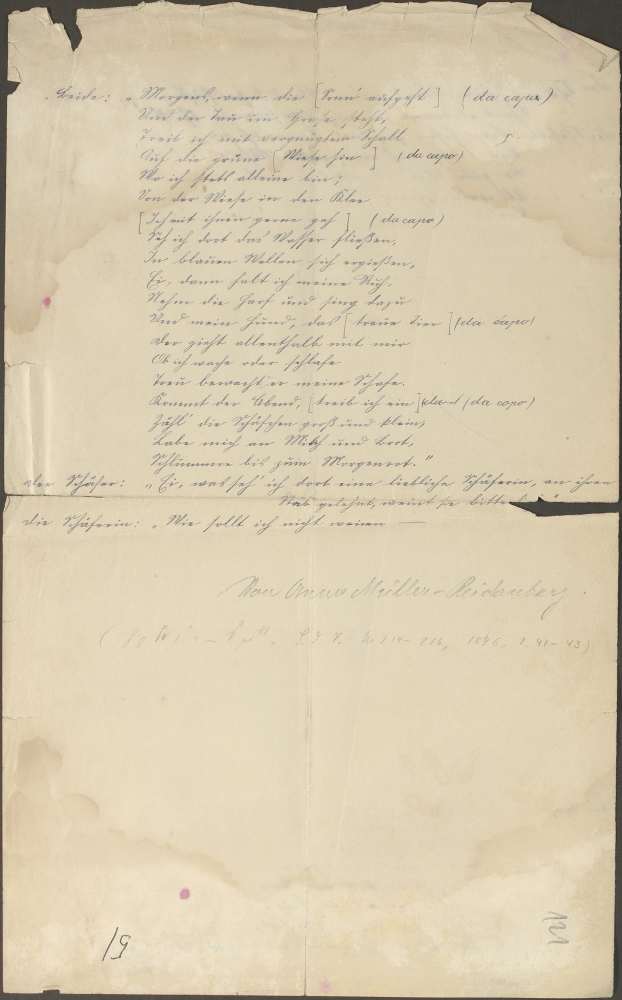 Beide: „Morgens, wenn die [Sonn' aufgeht] (da capo)
Und der Tau im Grase steht,
Treib ich mit vergnügtem Schall
Auf die grüne [Wiese hin] (da capo)
Wo ich stets alleine bin;
Von der Wiese in den Klee
[Ich mit ihnen gerne geh] (da capo)
Seh ich dort das Wasser fließen,
In blauen Wellen sich ergießen,
Ei, dann halt ich meine Ruh,
Nehm die Harf und sing dazu
Und mein Hund, das [treue Tier] (da capo)
Der zieht allenthalb mit mir
Ob ich wache oder schlafe
Treu bewacht er meine Schafe.
Kommt der Abend, [treib ich ein] (da capo)
Zähl' die Schäfchen groß und klein,
Labe mich an Milch und Brot,
Schlummere bis zum Morgenrot."
Der Schäfer: „Ei, was seh' ich dort eine liebliche Schäferin, an ihren
Stab gelehnt, weint sie
Die Schäferin: „Wie sollt ich nicht weinen —
Von Anna Müller-Reidenberg.
1896,
121
51